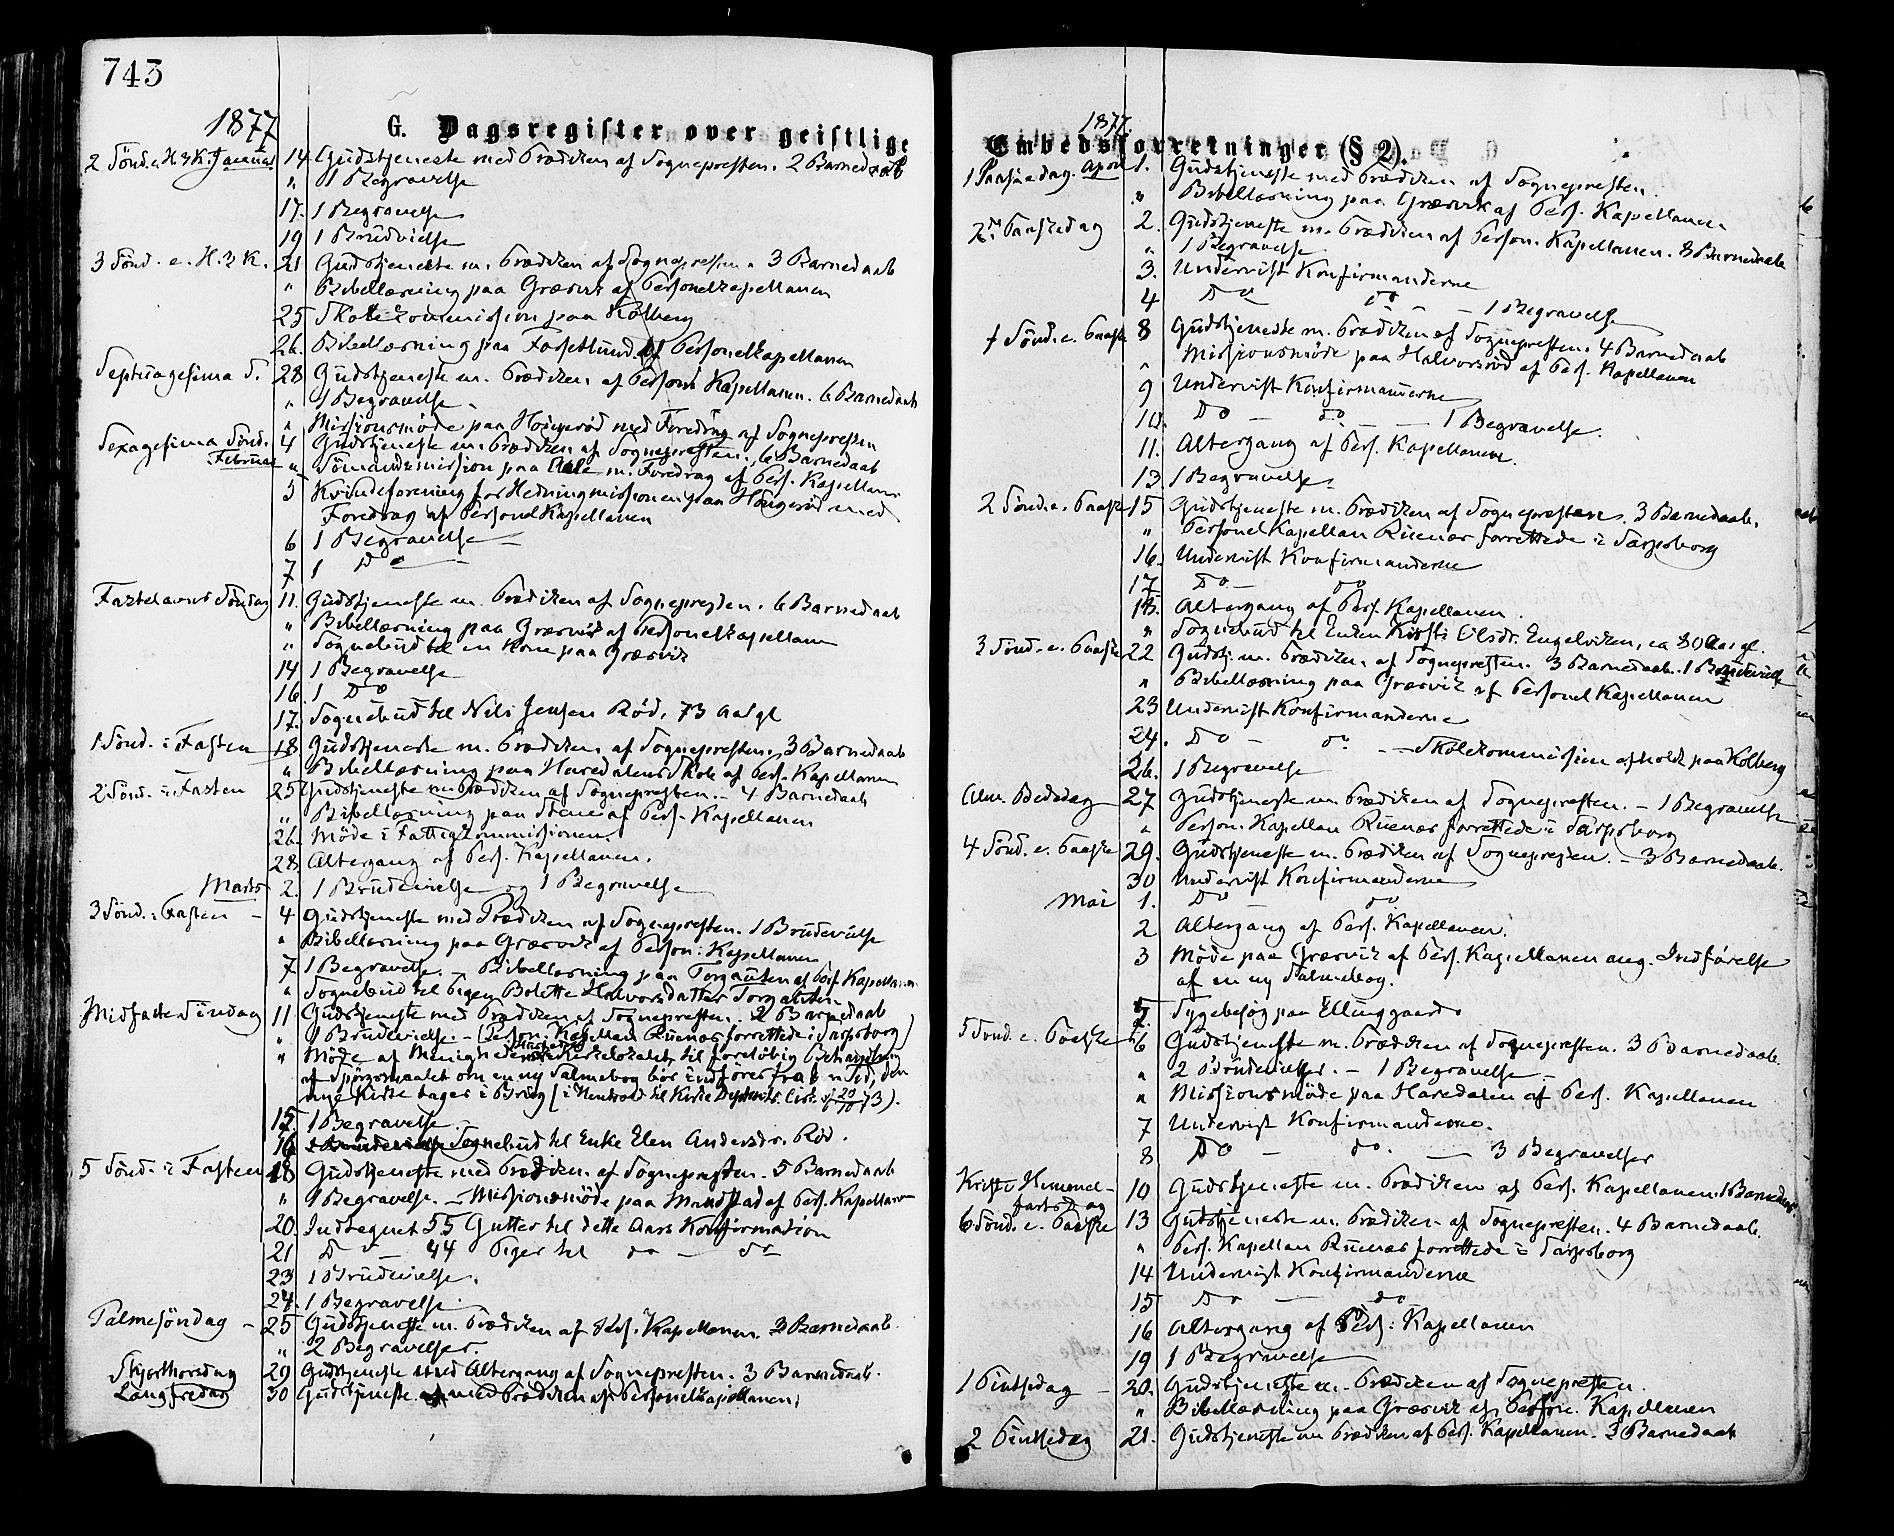 743
1877
G. Dagsregister over geistlige
2 Sönd. e. H. 3 K. Januar 14. Gudstjeneste med Prædiken af Sognepresten. 2 Barnedaab
" 1 Begravelse
17. 1 Begravelse
19 1 Brudvielse
3 Sönd. e. H. 3 K. 21 Gudstjeneste m. Prædiken af Sognepresten. 3 Barnedaab
" Bibellæsning paa Græsvik af Personelkapellanen
25 Skolekommission paa Kolberg
26. Bibellæsning paa af Personelkapellanen
Septuagesima S. 28 Gudstjeneste m. Prædiken af Person. Kapellanen. 6 Barnedaab
" 1 Begravelse
" Missionsmöde paa Haugeröd med Foredrag af Sognepresten
Sexagesima Sönd. 4 Gudstjeneste m. Prædiken af Sognepresten. 6 Barnedaab
Februar " Sömandsmission paa Ale m. Foredrag af Pers. Kapellanen
5 Kvindeforening for Hedningmissionen paa Haugeröd med
Foredrag af Personel Kapellanen
6 1 Begravelse
7 1 Do
Fastelavns Söndag 11. Gudstjeneste m. Prædiken af Sognepresten. 6 Barnedaab
" Bibellæsning paa Græsvik af Personelkapellanen
" Sognebud til en Kone paa Græsvik
14 1 Begravelse
16 1 Do
17. Sognebud til Nils Jensen Röd, 73 Aar gl
1 Sönd. i Fasten 18 Gudstjeneste m. Prædiken af Sognepresten. 3 Barnedaab
" Bibellæsning paa Haredalens Skole af Pers. Kapellanen
2 Sönd. i Fasten 25 Gudstjeneste m. Prædiken af Sognepresten. – 4 Barnedaab
" Bibellæsning paa Stene af Pers. Kapellanen
26. Möde i Fattigkommissionen.
28 Altergang af Pers. Kapellanen.
Marts 2. 1 Brudevielse og 1 Begravelse
3 Sönd. i Fasten – 4 Gudstjeneste med Prædiken af Sognepresten. 1 Brudevielse
" Bibellæsning paa Græsvik af Person. Kapellanen
7 1 Begravelse. – Bibellæsning paa Torgauten af Pers. Kapellanen
" Sognebud til Pigen Bolette Halvorsdatter Torgauten
Midfaste Söndag 11 Gudstjeneste med Prædiken af Sognepresten. 2 Barnedaab
" 1 Brudevielse. – (Person. Kapellan Ruenæs forrettede i Sarpsborg)
" Möde af Menigheden i Kirkelokalet til foreløbig Behandling
af Spörgsmaalet om en ny Salmebog bör indföres fra den Tid, den
nye Kirke tages i Brug (i Henhold til Kirke Departts. Cirk. af 20/10 73).
15. 1 Begravelse
16 Sognebud til Enke Elen Andersdr. Röd.
5 Sönd. i Fasten 18 Gudstjeneste med Prædiken af Sognepresten. 5 Barnedaab
" 1 Begravelse. – Missionsmöde paa af Pers. Kapellanen
20. Indtegnet 55 Gutter til dette Aars Konfirmation
21 Do – 44 Piger til do – do
23 1 Brudevielse.
24. 1 Begravelse.
Palmesöndag – 25 Gudstjeneste m. Prædiken af Pers. Kapellanen. 3 Barnedaab.
" 2 Begravelser.
Skjærthorsdag 29 Gudstjeneste med Altergang af Sognepresten. 3 Barnedaab.
Langfredag 30 Gudstjeneste med Prædiken af Personelkapellanen.
1877.
Embedsforretninger (§ 2).
1 Paaskedag. April 1. Gudstjeneste med Prædiken af Sognepresten.
" Bibellæsning paa Græsvik af Pers. Kapellanen
2n Paaskedag 2. Gudstjeneste m. Prædiken af Person. Kapellanen. 8 Barnedaab
" 1 Begravelse
3. Undervist Konfirmanderne
4 Do do – 1 Begravelse
1 Sönd. e. Paaske 8 Gudstjeneste m. Prædiken af Sognepresten. 4 Barnedaab
" Missionsmöde paa Halvorsröd af Pers. Kapellanen
9 Undervist Konfirmanderne
10. Do – do – 1 Begravelse.
11. Altergang af Pers. Kapellanen.
13. 1 Begravelse
2 Sönd. e. Paaske 15 Gudstjeneste m. Prædiken af Sognepresten. 3 Barnedaab.
" Personel Kapellan Ruenæs forrettede i Sarpsborg
16. Undervist Konfirmanderne
17 Do – do
18. Altergang af Pers. Kapellanen
" Sognebud til Enken Kirsti Olsdr. Engelviken, ca 80 Aar gl.
3 Sönd. e. Paaske 22 Gudstj. m. Prædiken af Sognepresten. 3 Barnedaab. 1 Brudevielse
" Bibellæsning paa Græsvik af Personel Kapellanen
23 Undervist Konfirmanderne
24. Do – do – Skolekommission afholdt paa Kolberg
26. 1 Begravelse
Alm. Bededag 27 Gudstjeneste m. Prædiken af Sognepresten. – 1 Begravelse
" Person. Kapellan Ruenæs forrettede i Sarpsborg
4 Sönd. e. Paaske 29. Gudstjeneste m. Prædiken af Sognepresten. – 3 Barnedaab.
30 Undervist Konfirmanderne
Mai 1. Do – do.
2 Altergang af Pers. Kapellanen.
3 Möde paa Græsvik af Pers. Kapellanen ang. Indförelse
af en ny Salmebog.
5. Sygebesög paa Elinggaard
5 Sönd. e. Paaske 6 Gudstjeneste m. Prædiken af Sognepresten. 3 Barnedaab.
" 2 Brudevielser. – 1 Begravelse
" Missionsmöde paa Haredalen af Pers. Kapellanen
7 Undervist Konfirmanderne.
8 Do – do. – 3 Begravelser
Kristi Himmel-
farts Dag 10 Gudstjeneste m. Prædiken af Pers. Kapellanen. 1 Barnedaab.
6 Sönd. e. Paaske 13 Gudstjeneste m. Prædiken af Sognepresten. 4 Barnedaab.
" Pers. Kapellan Ruenæs forrettede i Sarpsborg
14 Undervist Konfirmanderne
15 Do – do
16 Altergang af Pers. Kapellanen
19 1 Begravelse
1 Pintsedag – 20. Gudstjeneste m. Prædiken af Sognepresten.
" Bibellæsning paa Græsvik af Person. Kapellanen
2 Pintsedag 21. Gudstjeneste m Prædiken af Pers. Kapellanen. 3 Barnedaab